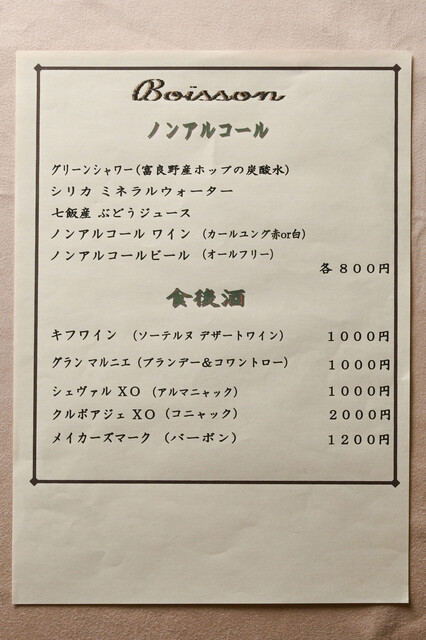 Boisson
ノンアルコール
グリーンシャワー（富良野産ホップの炭酸水）
シリカ ミネラルウォーター
七飯産 ぶどうジュース
ノンアルコール ワイン （カールユング赤or白）
ノンアルコールビール （オールフリー）
各８００円
食後酒
キフワイン （ソーテルヌ デザートワイン） １０００円
グラン マルニエ（ブランデー＆コワントロー） １０００円
シェヴァル XO （アルマニャック） １０００円
クルボアジェ XO（コニャック） ２０００円
メイカーズマーク （バーボン） １２００円